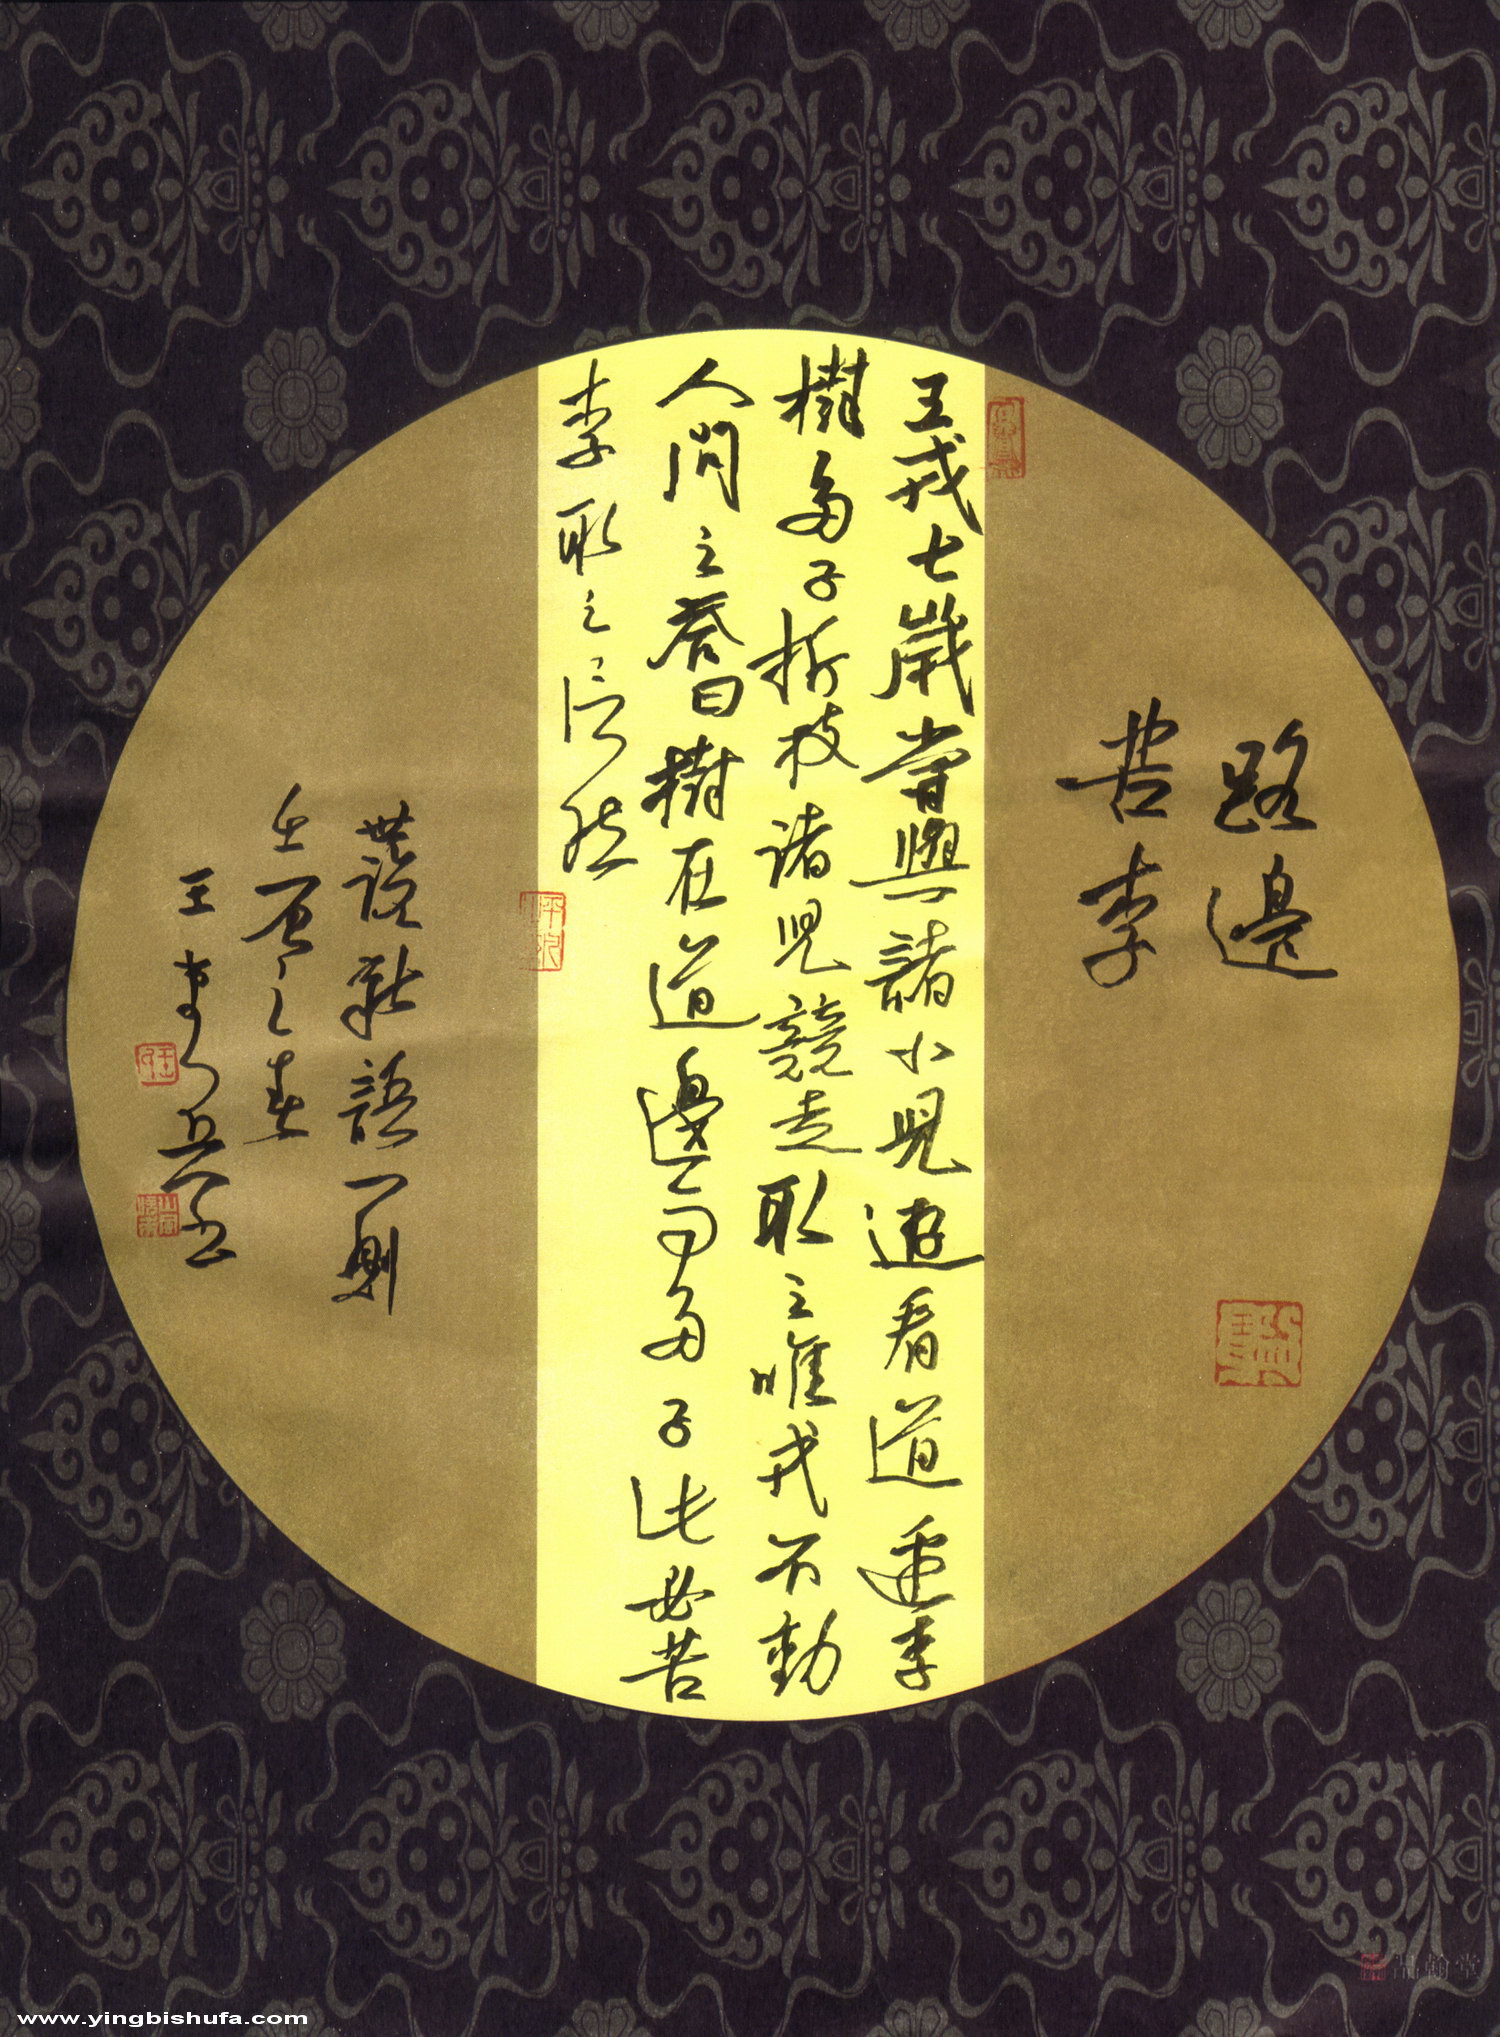 路邊
苦李
王戎七歲嘗與諸小兒遊看道邊李
樹多子折枝諸兒競走取之唯戎不動
人問之答曰樹在道邊而多子此必苦
李取之信然
世說新語一則
之春
王
品翰堂
www.yingbishufa.com